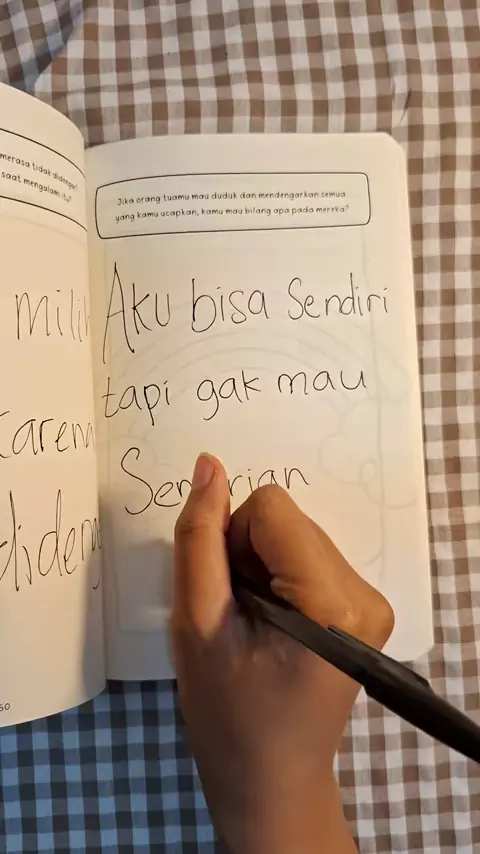 merasa tidak didengar
saat mengalami itu?
milih
karena
dideng
50
Jika orang tuamu mau duduk dan mendengarkan semua
yang kamu ucapkan, kamu mau bilang apa pada mereka?
Aku bisa Sendiri
tapi gak mau